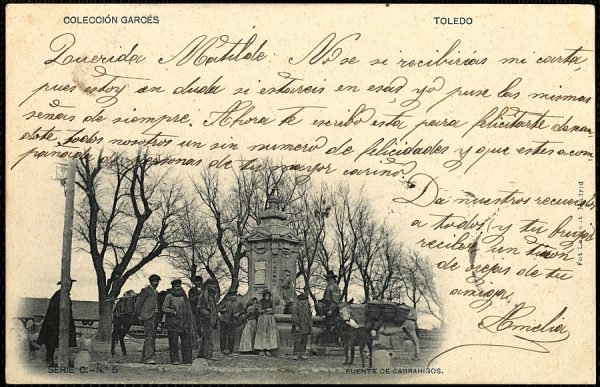 COLECCIÓN GARCÉS
TOLEDO
Querida Matilde. No se si recibirias mi carta,
pues estoy en duda si estareis en esa, yo puse las mismas
señas de siempre. Ahora te escribo esta para felicitarte desean
dote todos nosotros un sin numero de felicidades y que estes acom
pañada de personas de tu mayor cariño.
Da nuestros recuerdos
a todos y tu
recibe un tiron
de orejas de tu
amiga
Amelia
SERIE C.-N.º 5
FUENTE DE CABRAHIGOS.